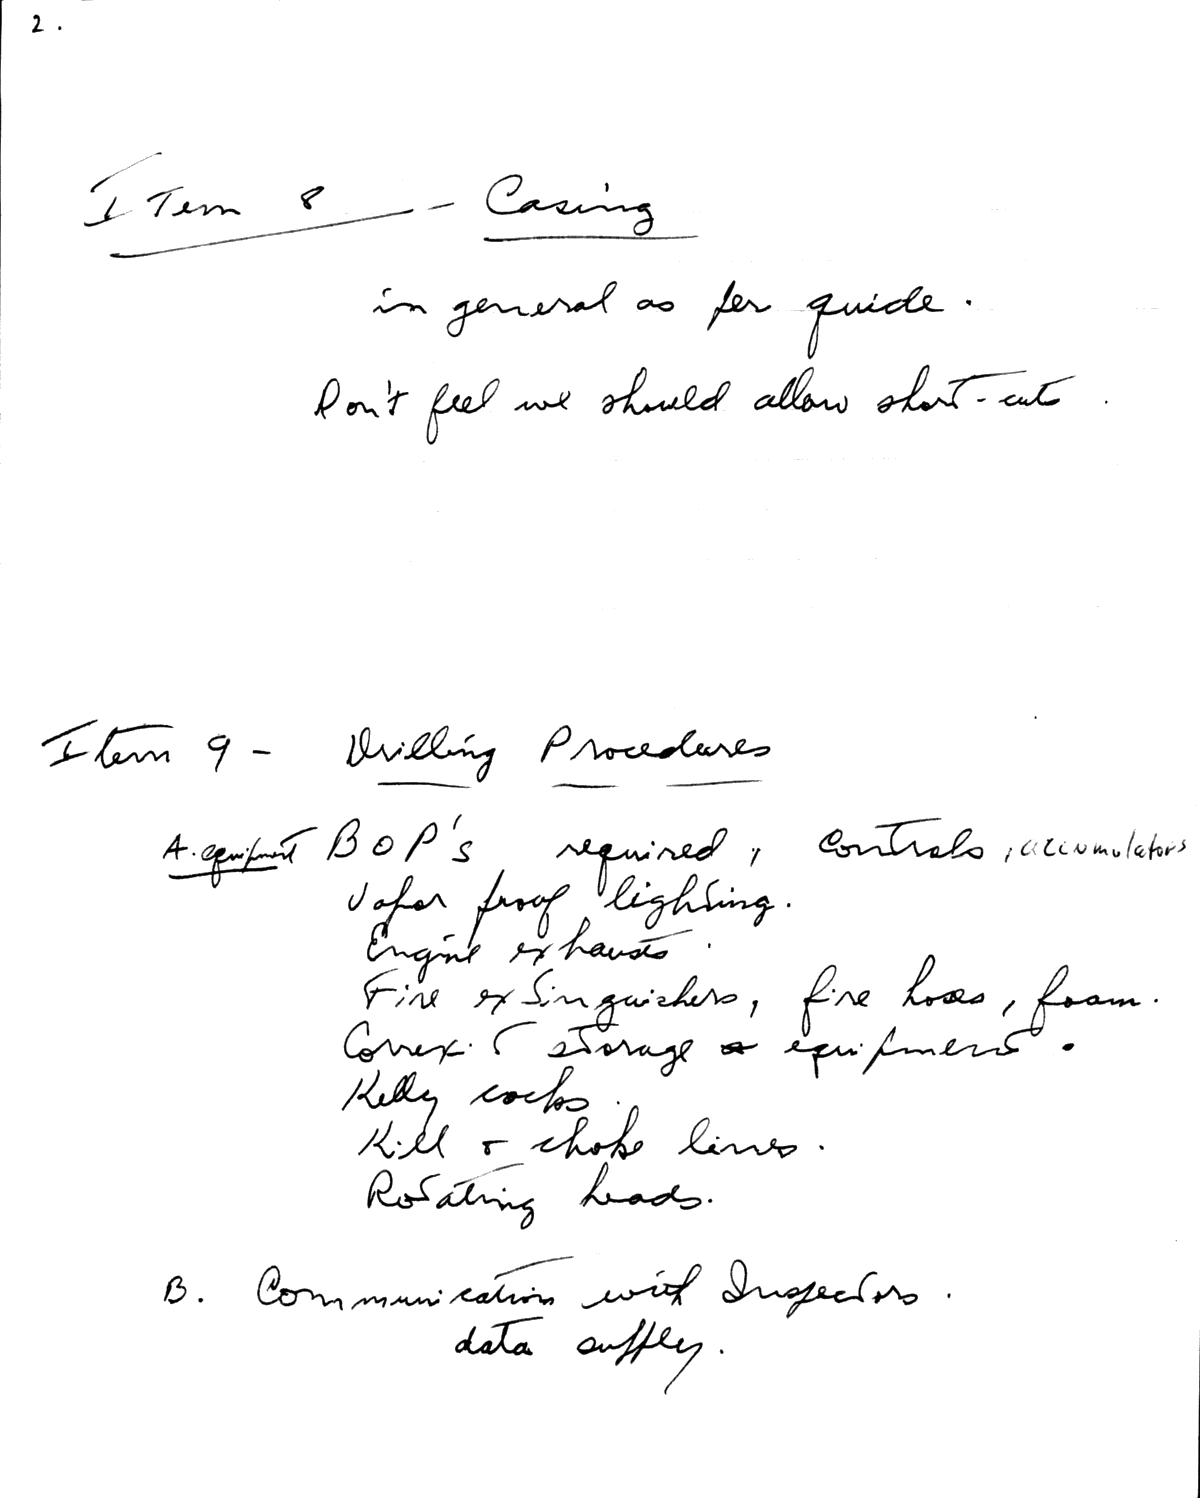 2.
Item 8 - Casing
in general as per guide.
Don't feel we should allow short-cuts.
Item 9 - Drilling Procedures
A. equipment BOP's required, controls, accumulators
Vapor proof lighting.
Engine exhausts.
Fire extinguishers, fire hoses, foam.
storage equipment.
Kelly cocks.
Kill & choke lines.
Rotating heads.
B. Communication with Inspectors.
data supply.